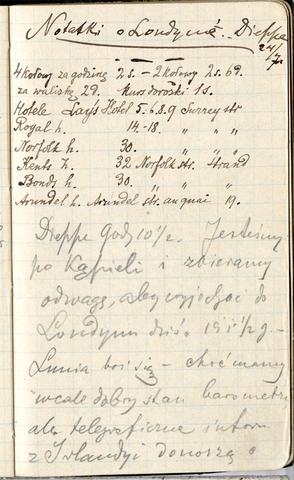 Notatki o Londynie. Dieppe
24/7
4 kołowy za godzinę 2 s. – 2 kołowy 2 s. 6 d.
za walizkę 2 d. Kurs dorożki 1 s.
Hotele Lay's Hotel 5. 6. 8. 9 Surrey str
Royal h. 14-18. " " "
Norfolk h. 30. " " "
Kents h. 32 Norfolk str. Strand
Bonds h. 30. " " "
Arundel h. Arundel str. au quai 19.
Dieppe godz 10 1/2. Jesteśmy
po kąpieli i zbieramy
odwagę, aby wyjechać do
Londynu dziś o
Lunia boi się – choć mamy
wcale dobry stan barometru
ale telegraficzne inform
z Irlandyi donoszą o